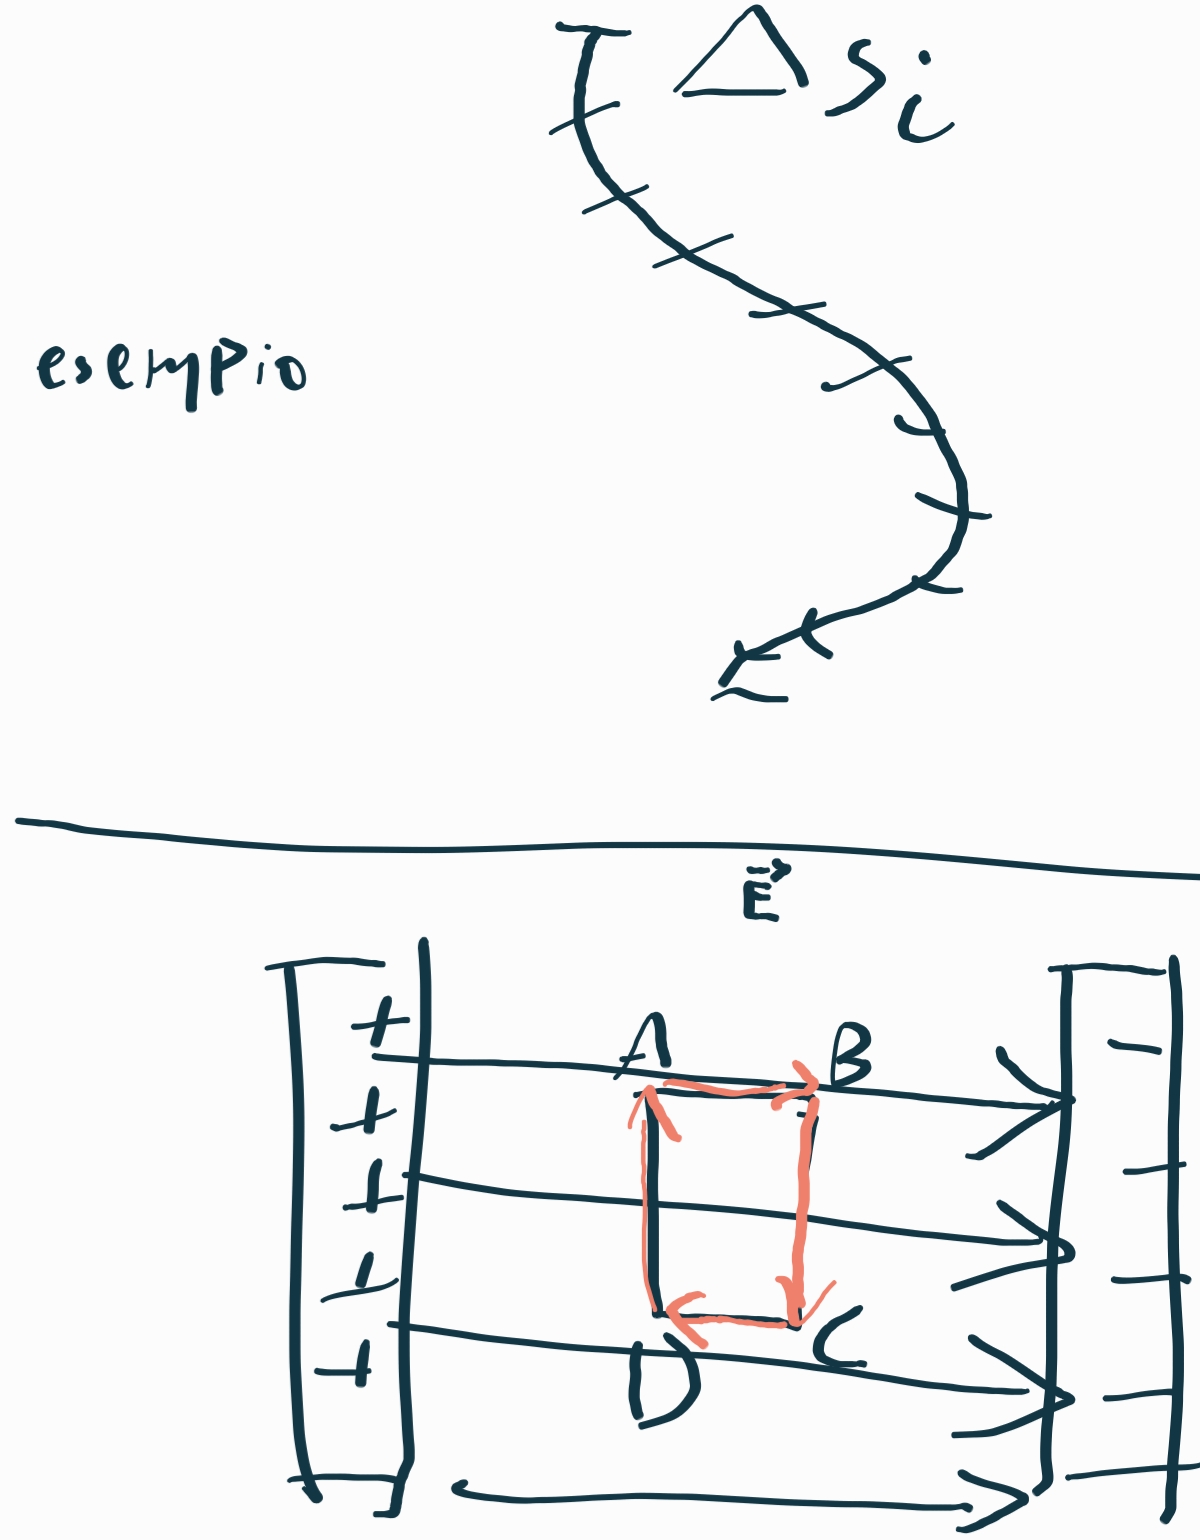 Δsᵢ
esempio
E⃗
+ −
A B
+
+ −
+ −
D C
+ −